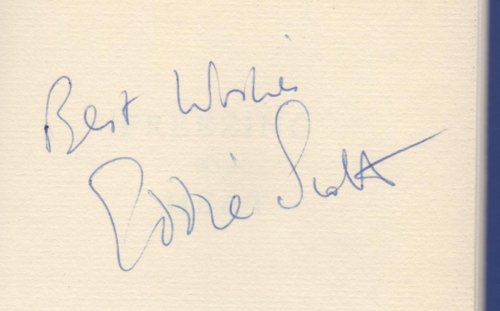 Best Wishes
Eddie Scott